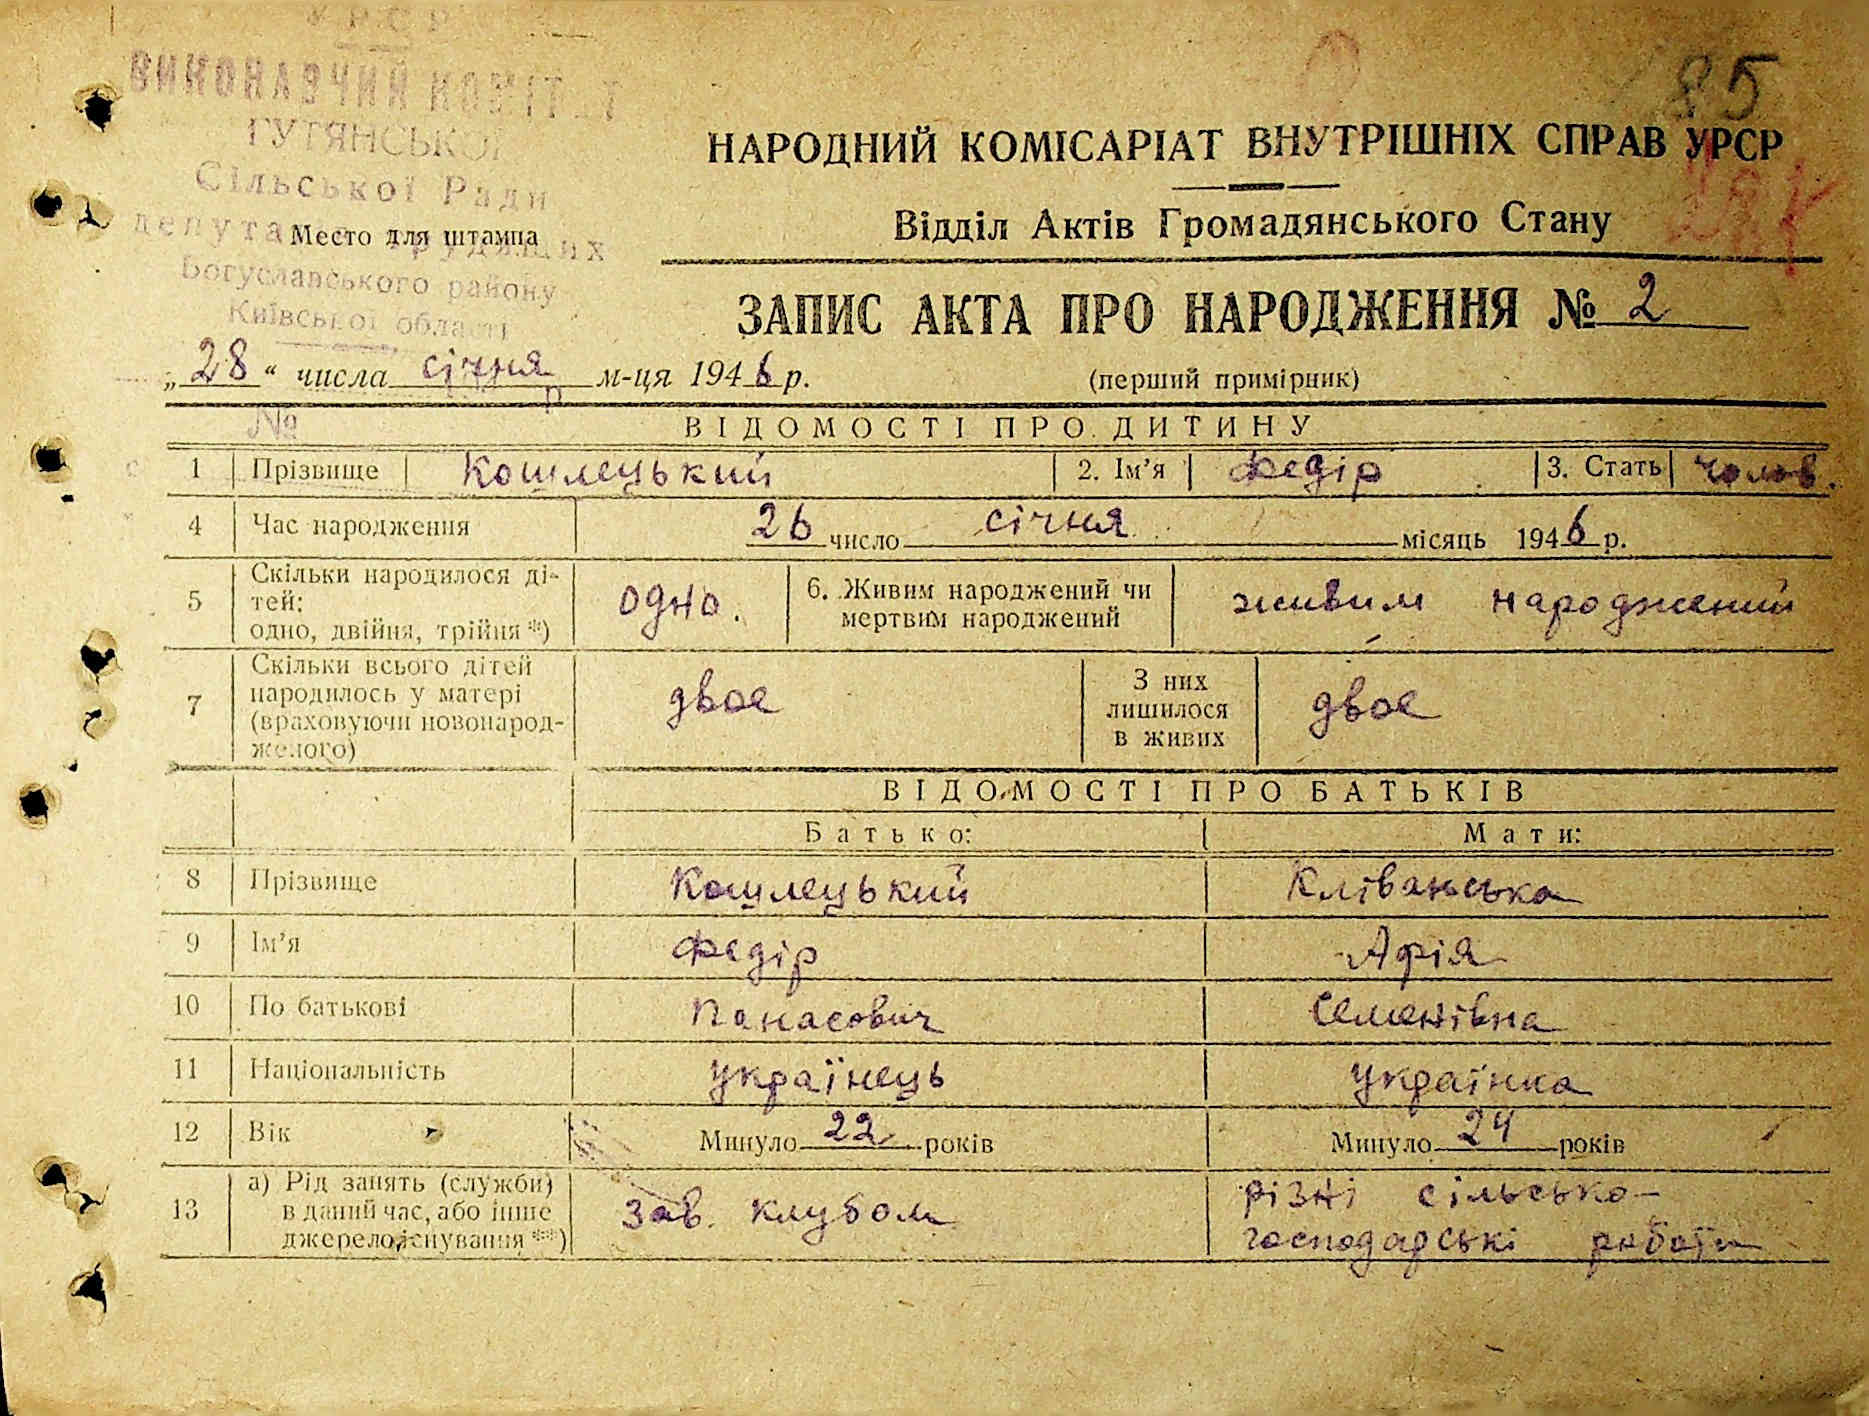 УРСР
ВИКОНАВЧИЙ КОМІТ Т
ГУТЯНСЬКОЇ
Сільської Ради
депута трудящих
Место для штампа
Богуславського району
Київської області
85
НАРОДНИЙ КОМІСАРІАТ ВНУТРІШНІХ СПРАВ УРСР
Відділ Актів Громадянського Стану
ЗАПИС АКТА ПРО НАРОДЖЕННЯ № 2
„28“ числа січня м-ця 1946 р.
(перший примірник)
№
ВІДОМОСТІ ПРО ДИТИНУ
1 Прізвище Кошлецький 2. Ім’я Федір 3. Стать чолов.
4 Час народження 26 число січня місяць 1946 р.
5 Скільки народилося ді-
тей:
одно, двійня, трійня *)
одно.
6. Живим народжений чи
мертвим народжений
живим народжений
7 Скільки всього дітей
народилось у матері
(враховуючи новонарод-
желого)
двоє
З них
лишилося
в живих
двоє
ВІДОМОСТІ ПРО БАТЬКІВ
Батько: Мати:
8 Прізвище Кошлецький Кліванська
9 Ім’я Федір Арія
10 По батькові Панасович Семенівна
11 Національність українець українка
12 Вік Минуло 22 років Минуло 24 років
13 а) Рід занять (служби)
в даний час, або інше
джерело існування **)
зав. клубом
різні сільсько-
господарські роботи